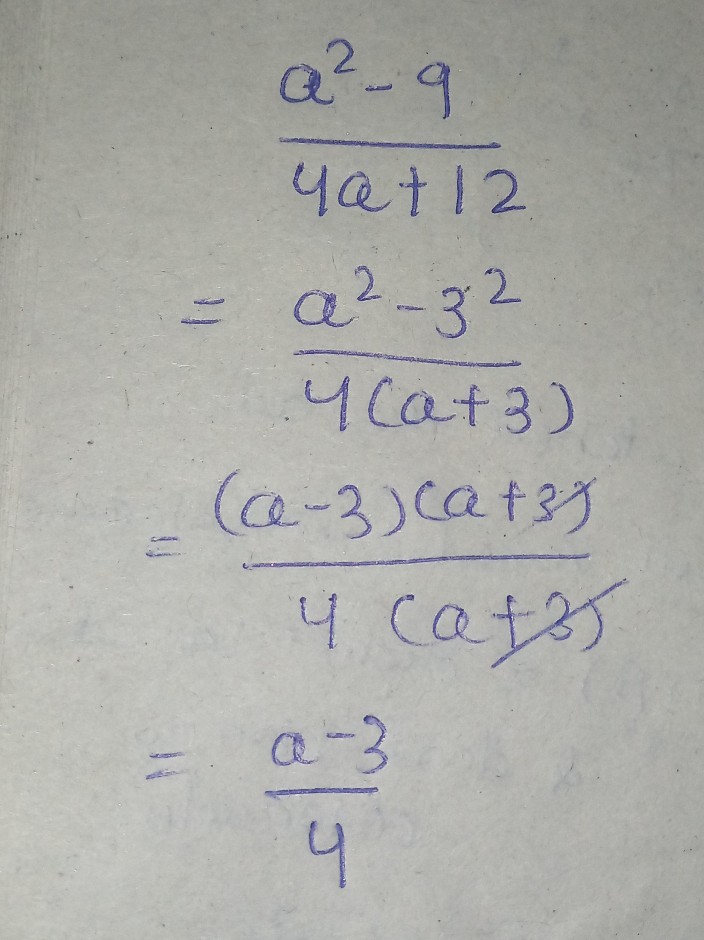 a² - 9
4a + 12
= a² - 3²
4(a + 3)
= (a - 3)(a + 3)
4 (a + 3)
= a - 3
4